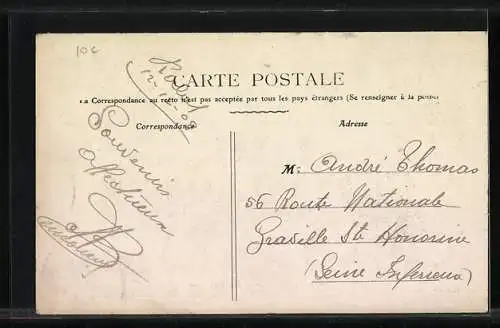 10c
12-12-08
CARTE POSTALE
La Correspondance au recto n'est pas acceptée par tous les pays étrangers (Se renseigner à la poste)
Correspondance
Adresse
Souvenirs
affectueux
M: André Thomas
56 Route Nationale
Graville Ste Honorine
(Seine Inferieure)